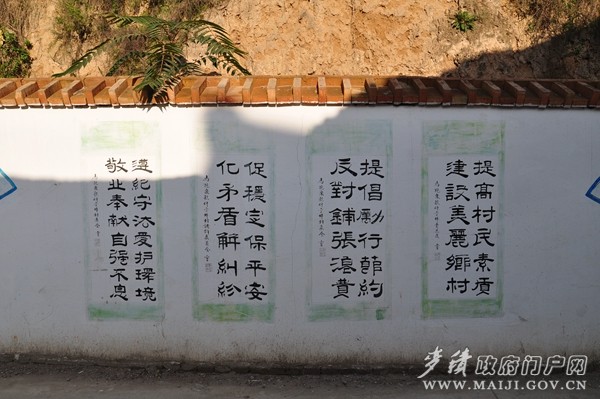 提高村民素质
建设美丽乡村
提倡励行節約
反對鋪張浪費
促穩定保平安
化矛盾解糾紛
遵紀守法爱护環境
敬业奉献自强不息
麦积政府门户网
WWW.MAIJI.GOV.CN